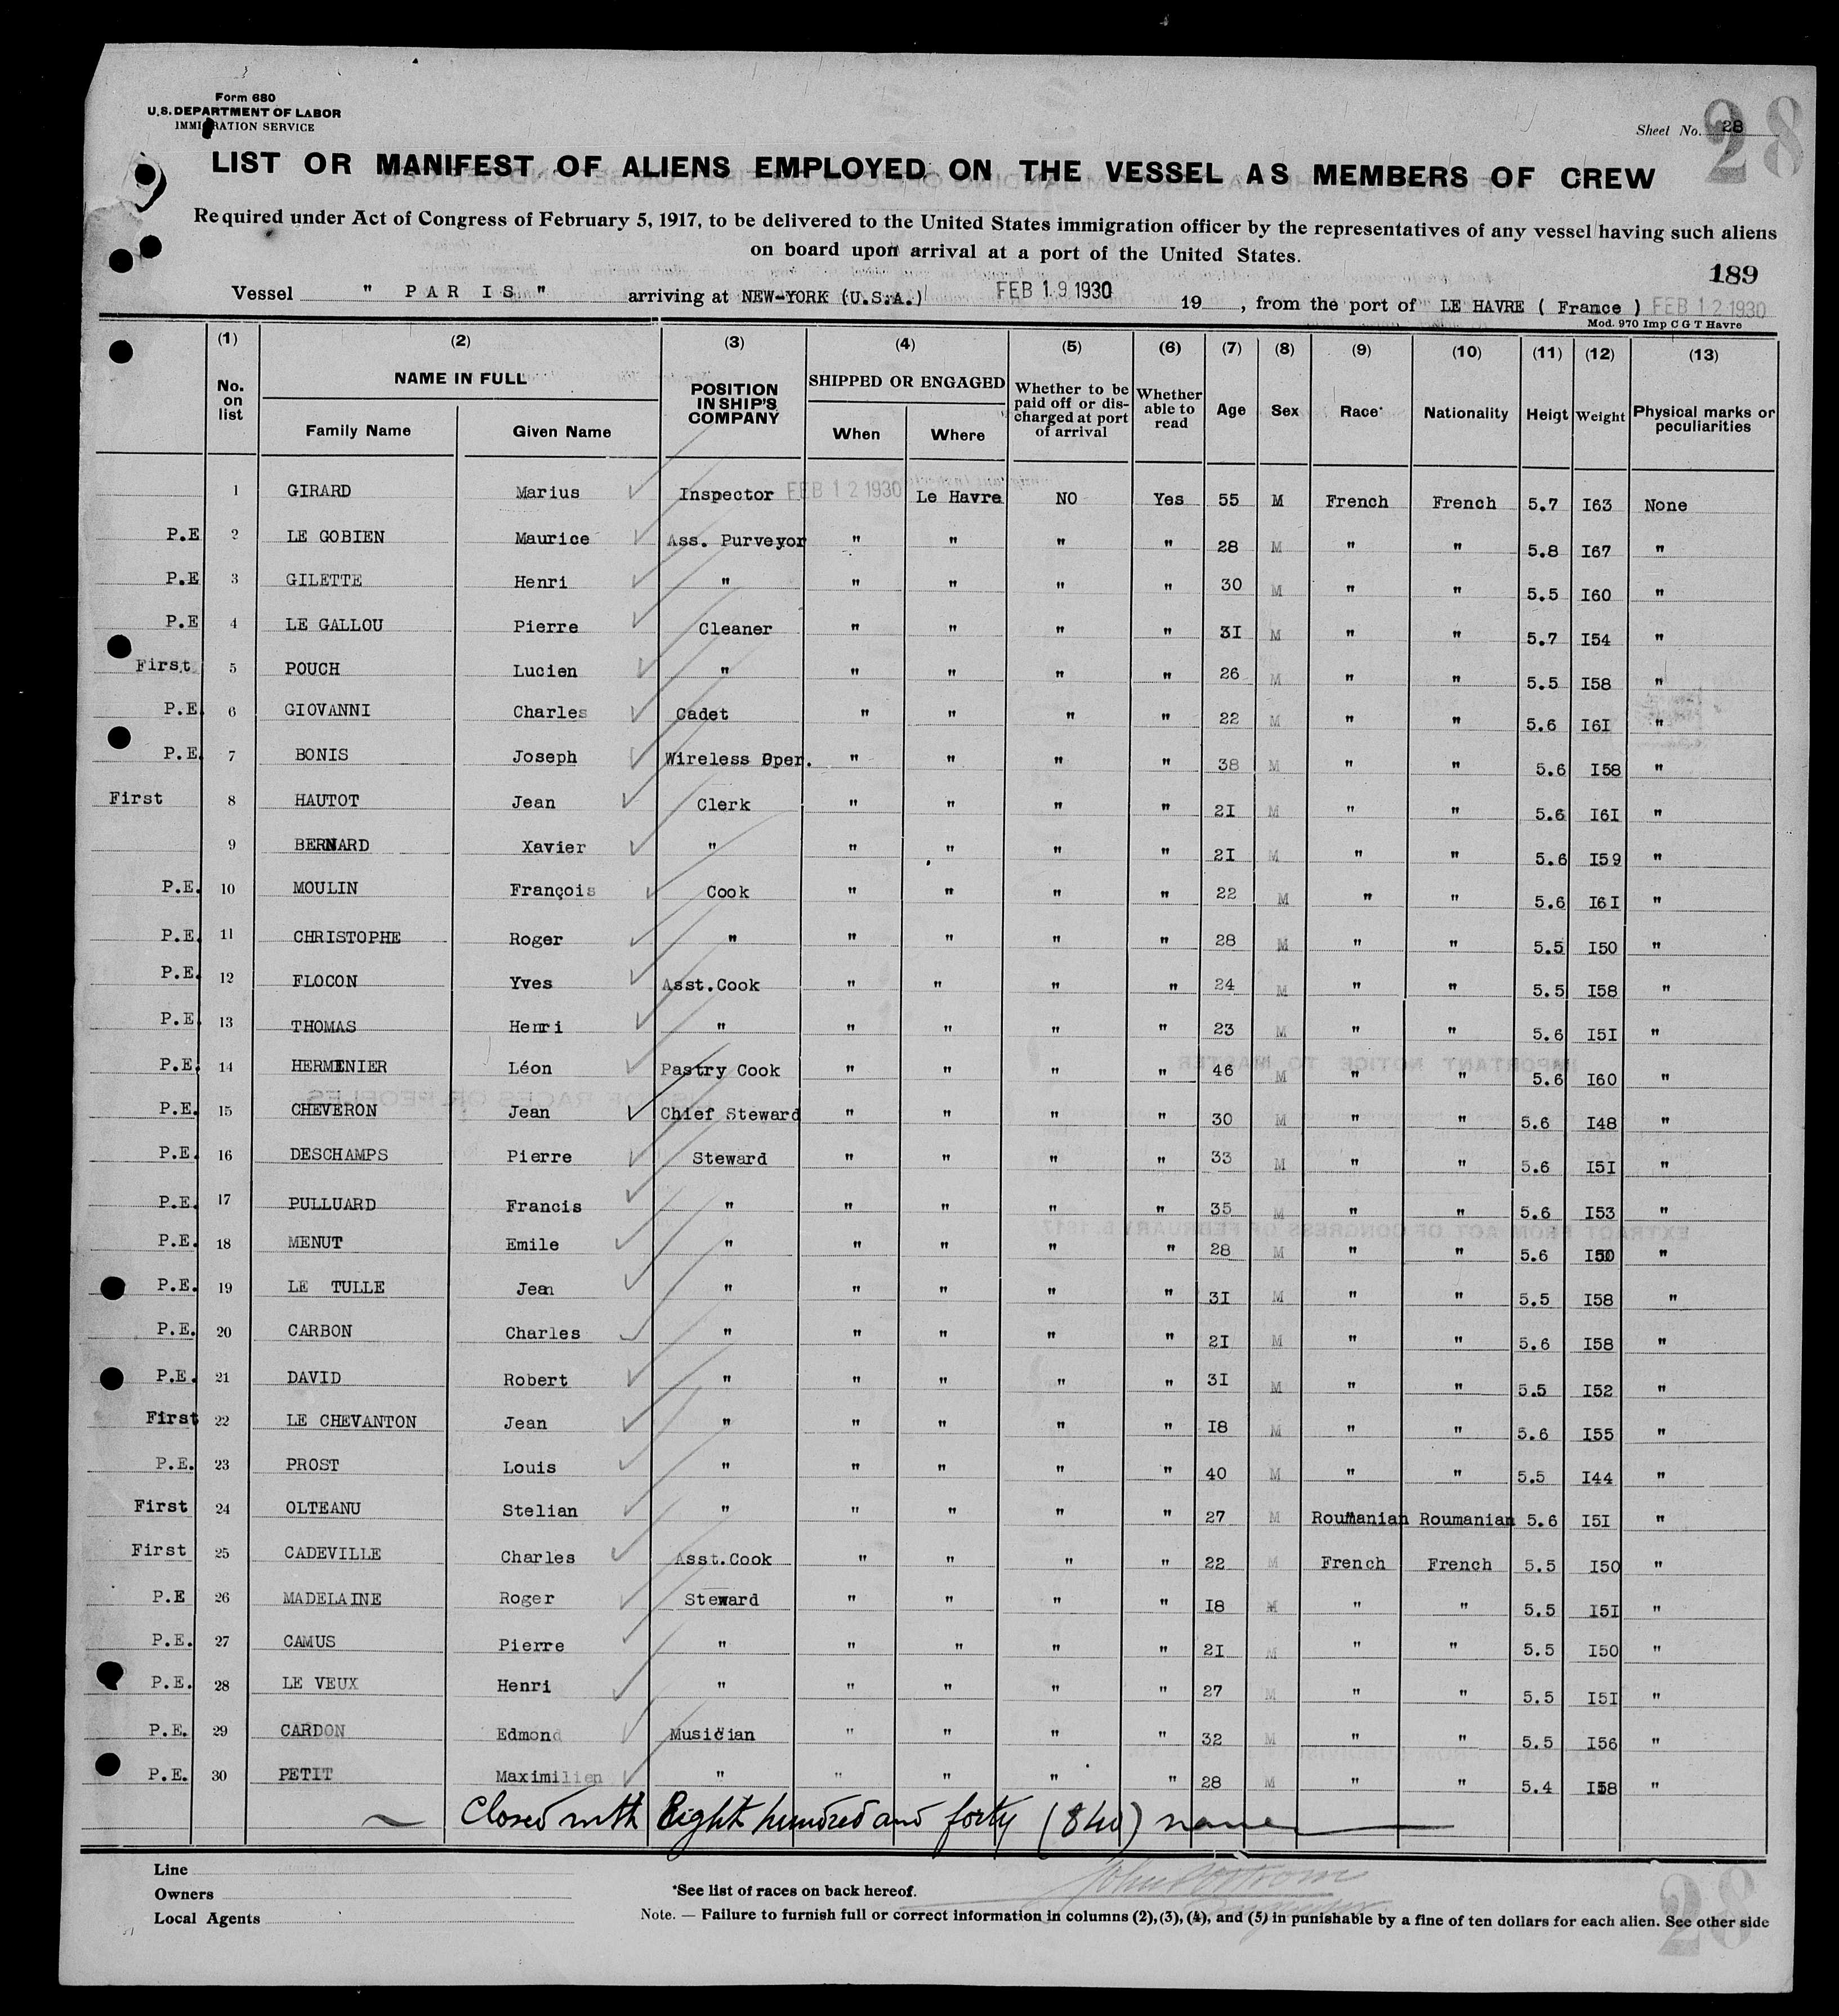 Form 680
U.S. DEPARTMENT OF LABOR
IMMIGRATION SERVICE
Sheet No. 28
28
LIST OR MANIFEST OF ALIENS EMPLOYED ON THE VESSEL AS MEMBERS OF CREW
Required under Act of Congress of February 5, 1917, to be delivered to the United States immigration officer by the representatives of any vessel having such aliens
on board upon arrival at a port of the United States.
189
Vessel " P A R I S " arriving at NEW-YORK (U.S.A.) FEB 19 1930 19 , from the port of LE HAVRE ( France ) FEB 12 1930
Mod. 970 Imp C G T Havre
(1) (2) (3) (4) (5) (6) (7) (8) (9) (10) (11) (12) (13)
No. on list NAME IN FULL Family Name Given Name POSITION IN SHIP'S COMPANY SHIPPED OR ENGAGED When Where Whether to be paid off or discharged at port of arrival Whether able to read Age Sex Race* Nationality Heigt Weight Physical marks or peculiarities
1 GIRARD Marius Inspector FEB 12 1930 Le Havre NO Yes 55 M French French 5.7 I63 None
P.E 2 LE GOBIEN Maurice Ass. Purveyor " " " " 28 M " " 5.8 I67 "
P.E 3 GILETTE Henri " " " " " 30 M " " 5.5 I60 "
P.E 4 LE GALLOU Pierre Cleaner " " " " 3I M " " 5.7 I54 "
First 5 POUCH Lucien " " " " " 26 M " " 5.5 I58 "
P.E. 6 GIOVANNI Charles Cadet " " " " 22 M " " 5.6 I6I "
P.E. 7 BONIS Joseph Wireless Oper. " " " " 38 M " " 5.6 I58 "
First 8 HAUTOT Jean Clerk " " " " 2I M " " 5.6 I6I "
9 BERNARD Xavier " " " " " 2I M " " 5.6 I59 "
P.E. 10 MOULIN François Cook " " " " 22 M " " 5.6 I6I "
P.E. 11 CHRISTOPHE Roger " " " " " 28 M " " 5.5 I50 "
P.E. 12 FLOCON Yves Asst.Cook " " " " 24 M " " 5.5 I58 "
P.E. 13 THOMAS Henri " " " " " 23 M " " 5.6 I5I "
P.E. 14 HERMENIER Léon Pastry Cook " " " " 46 M " " 5.6 I60 "
P.E. 15 CHEVERON Jean Chief Steward " " " " 30 M " " 5.6 I48 "
P.E. 16 DESCHAMPS Pierre Steward " " " " 33 M " " 5.6 I5I "
P.E. 17 PULLUARD Francis " " " " " 35 M " " 5.6 I53 "
P.E. 18 MENUT Emile " " " " " 28 M " " 5.6 I50 "
P.E. 19 LE TULLE Jean " " " " " 3I M " " 5.5 I58 "
P.E. 20 CARBON Charles " " " " " 2I M " " 5.6 I58 "
P.E. 21 DAVID Robert " " " " " 3I M " " 5.5 I52 "
First 22 LE CHEVANTON Jean " " " " " I8 M " " 5.6 I55 "
P.E. 23 PROST Louis " " " " " 40 M " " 5.5 I44 "
First 24 OLTEANU Stelian " " " " " 27 M Roumanian Roumanian 5.6 I5I "
First 25 CADEVILLE Charles Asst.Cook " " " " 22 M French French 5.5 I50 "
P.E 26 MADELAINE Roger Steward " " " " I8 M " " 5.5 I5I "
P.E. 27 CAMUS Pierre " " " " " 2I M " " 5.5 I50 "
P.E. 28 LE VEUX Henri " " " " " 27 M " " 5.5 I5I "
P.E. 29 CARDON Edmond Musician " " " " 32 M " " 5.5 I56 "
P.E. 30 PETIT Maximilien " " " " " 28 M " " 5.4 I58 "
Closed with Eight hundred and forty (840) names
Line
Owners
Local Agents
*See list of races on back hereof.
Note. — Failure to furnish full or correct information in columns (2),(3),(4), and (5) in punishable by a fine of ten dollars for each alien. See other side
28